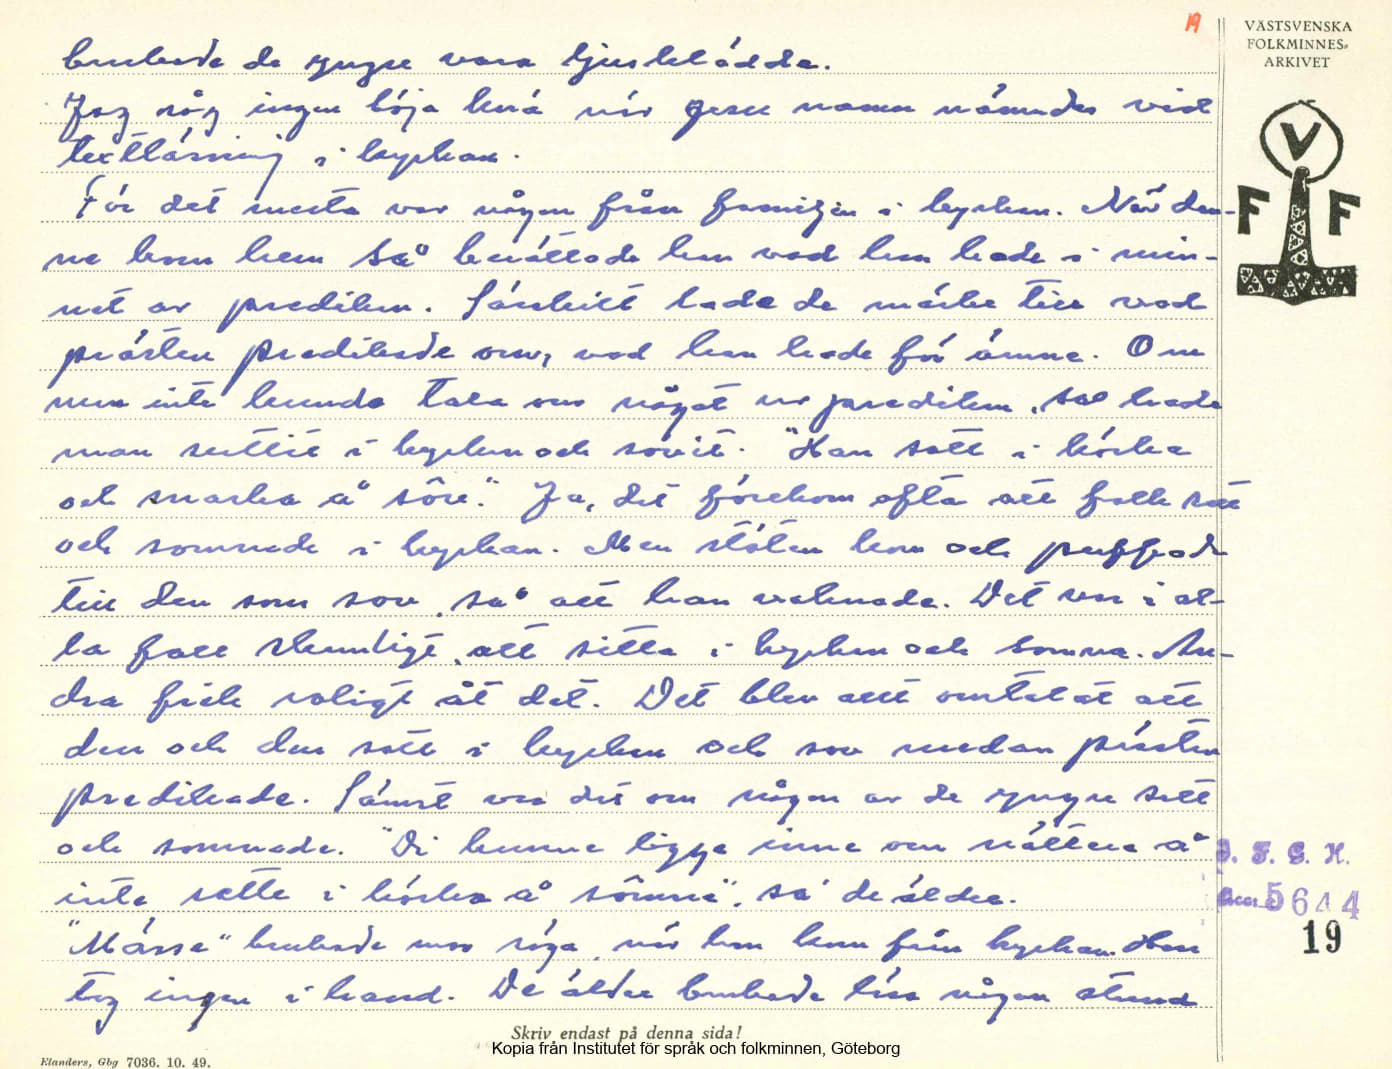 19
VÄSTSVENSKA
FOLKMINNES-
ARKIVET
V
F F
brukade de yngre vara ljusklädda.
Jag såg ingen böja knä när Jesu namn nämndes vid
textläsning i kyrkan.
För det mesta var någon från familjen i kyrkan. När den-
ne kom hem så berättade han vad han hade i min-
net av predikan. Särskilt lade de märke till vad
prästen predikade om, vad han hade för ämne. Om
man inte kunde tala om något ur predikan, så hade
man suttit i kyrkan och sovit. "Han satt i körka
och snarka å sôve." Ja, det förekom ofta att folk satt
och somnade i kyrkan. Men stöten kom och puffade
till den som sov, så att han vaknade. Det var i al-
la fall skamligt, att sitta i kyrkan och somna. An-
dra fick roligt åt det. Det blev allt omtalat att
den och den satt i kyrkan och sov medan prästen
predikade. Sämst var det om någon av de yngre satt
och somnade. "Di kunne ligga inne om nättera å
inte sette i körka å sômna", sa de äldre.
"Mässa" brukade mor säga, när hon kom från kyrkan. Hon
tog ingen i hand. De äldre brukade läsa någon stund
I. F. G. H.
Acc. 5644
19
Skriv endast på denna sida!
Kopia från Institutet för språk och folkminnen, Göteborg
Elanders, Gbg 7036. 10. 49.